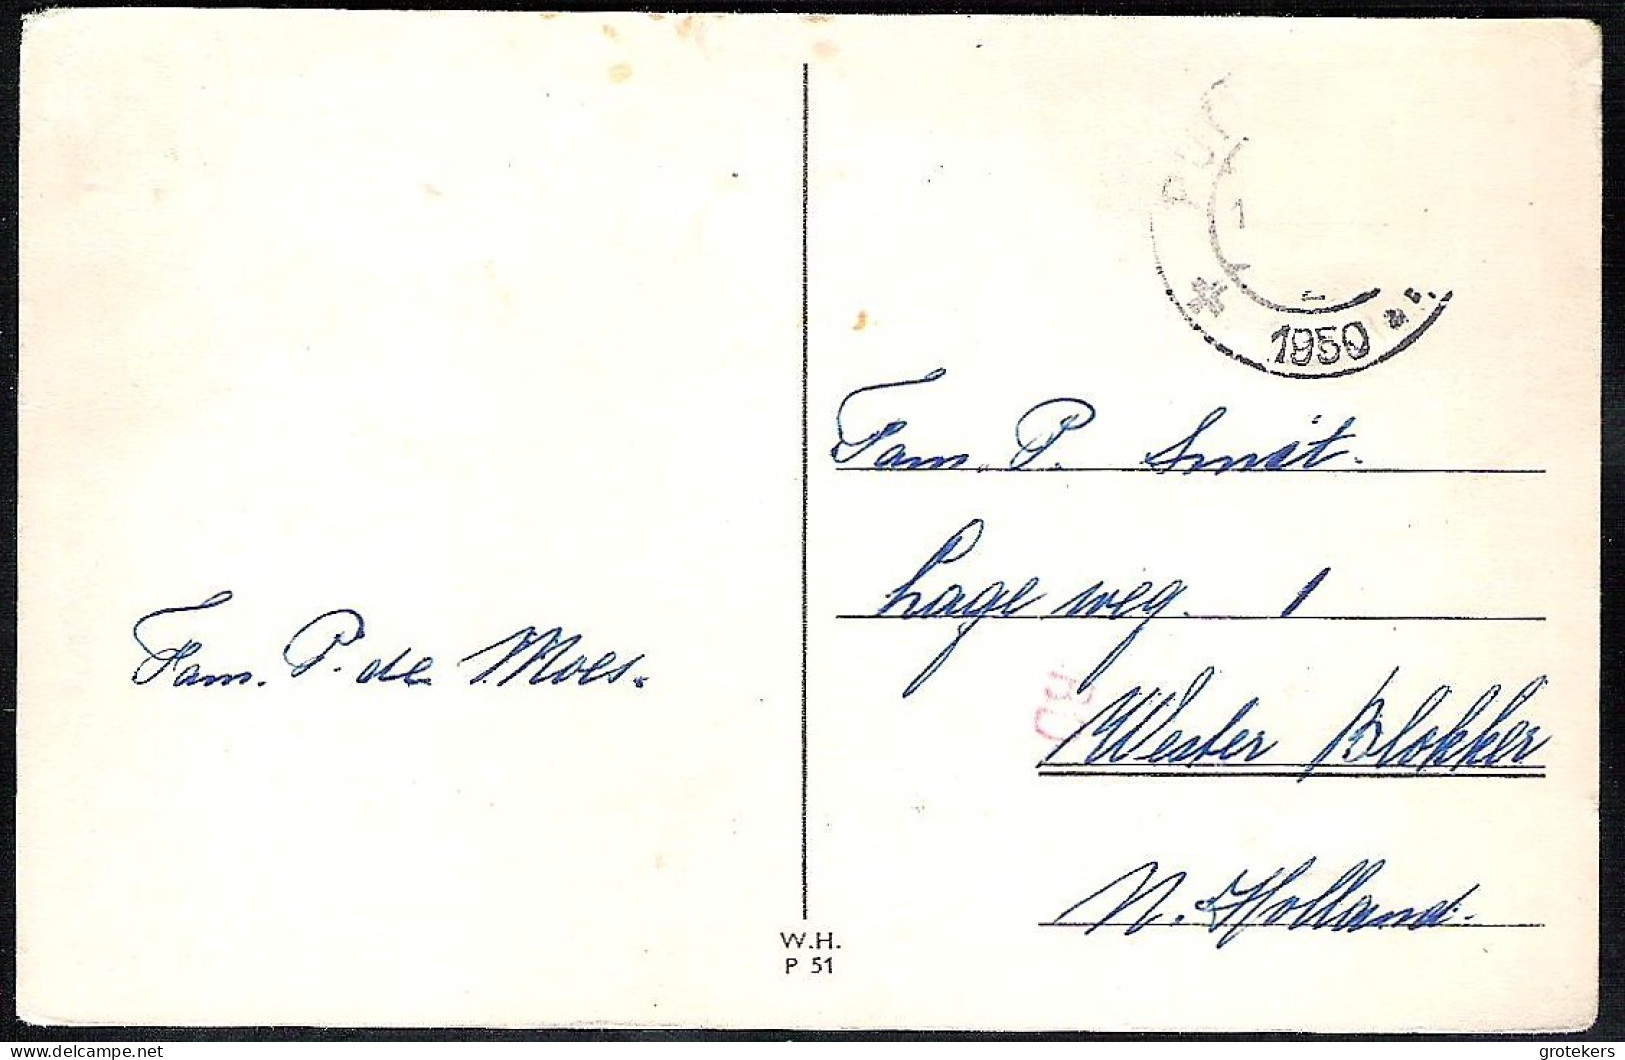 1
1950
Fam. P. Smit.
Lage weg. 1
Fam. P. de Moes.
Wester Blokker
N. Holland.
W.H.
P 51
delcampe.net
grotekers